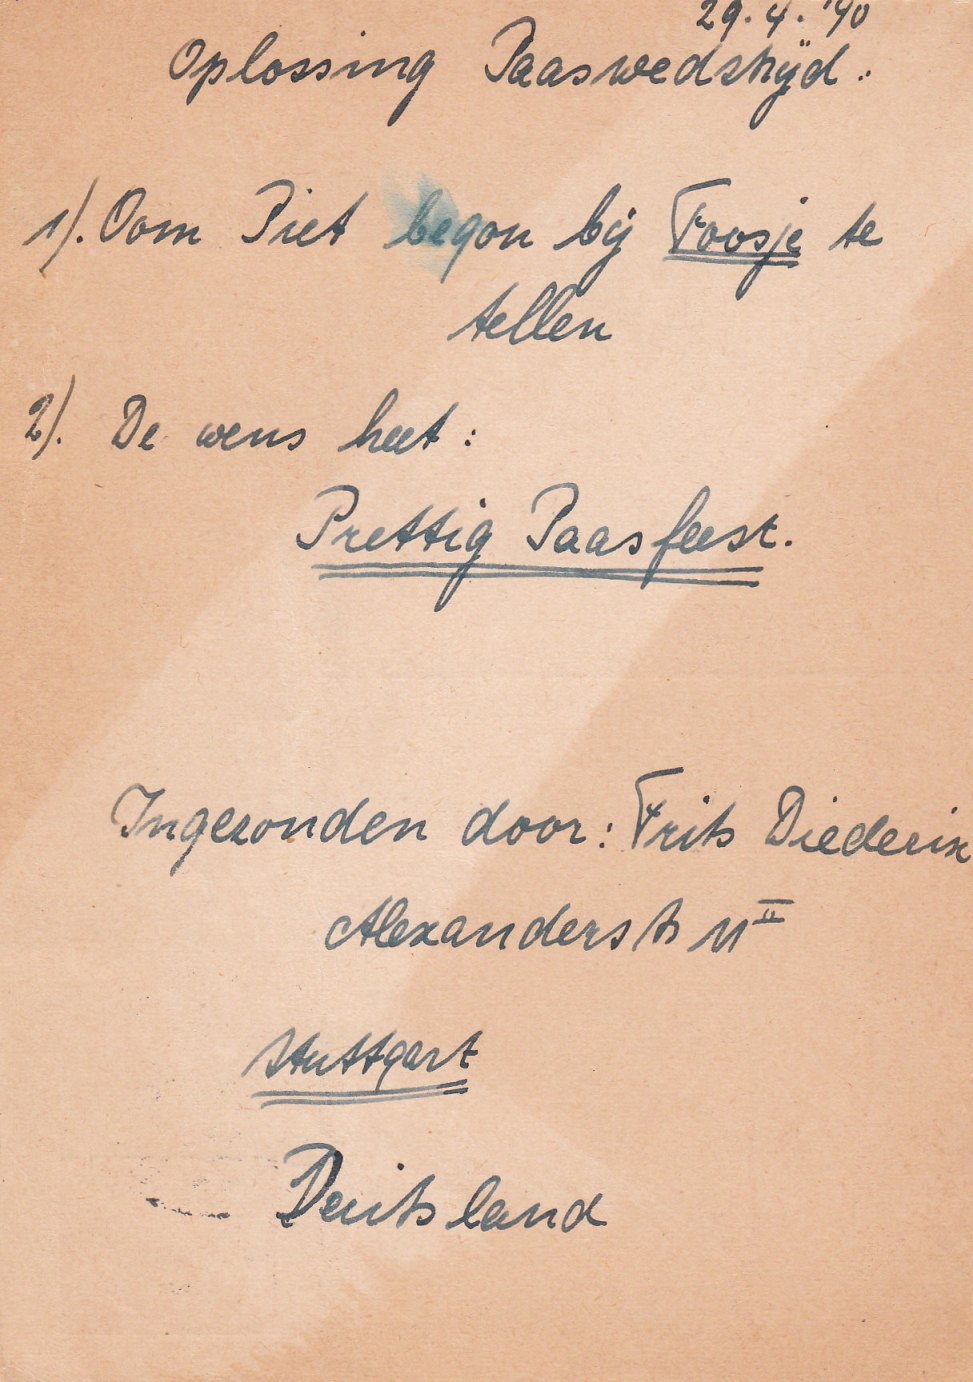 29.4.'40
Oplossing Paaswedstrijd:
1). Oom Piet begon bij Toosje te
tellen
2). De wens heet:
Prettig Paasfeest.
Ingezonden door: Frits Diederix
Alexanderstr 11 II
Stuttgart
Deutsland